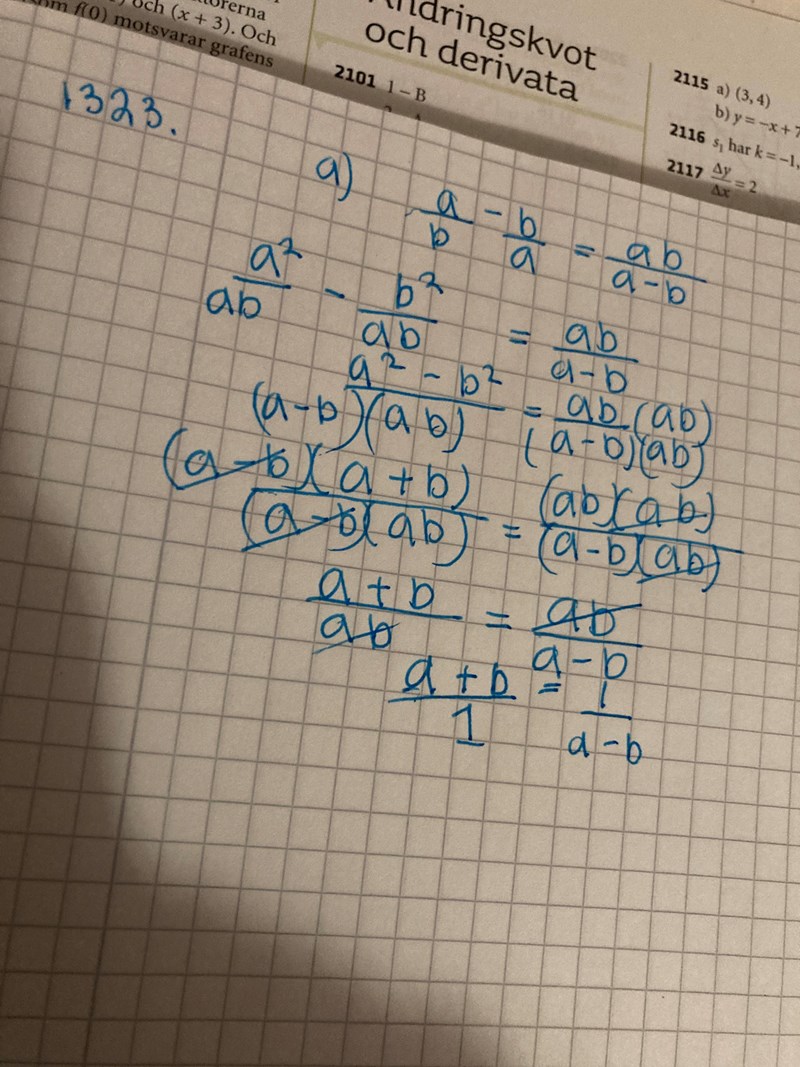 och (x + 3). Och
om f(0) motsvarar grafens
och derivata
2101 1 – B
2115 a) (3, 4)
b) y = –x + 7
2116 s₁ har k = –1,
2117 Δy/Δx = 2
1323.
a) a/b - b/a = ab/(a-b)
a²/ab - b²/ab = ab/(a-b)
(a² - b²)/((a-b)(ab)) = ab(ab)/((a-b)(ab))
(a-b)(a+b)/((a-b)(ab)) = (ab)(ab)/((a-b)(ab))
(a+b)/ab = ab/(a-b)
(a+b)/1 = 1/(a-b)